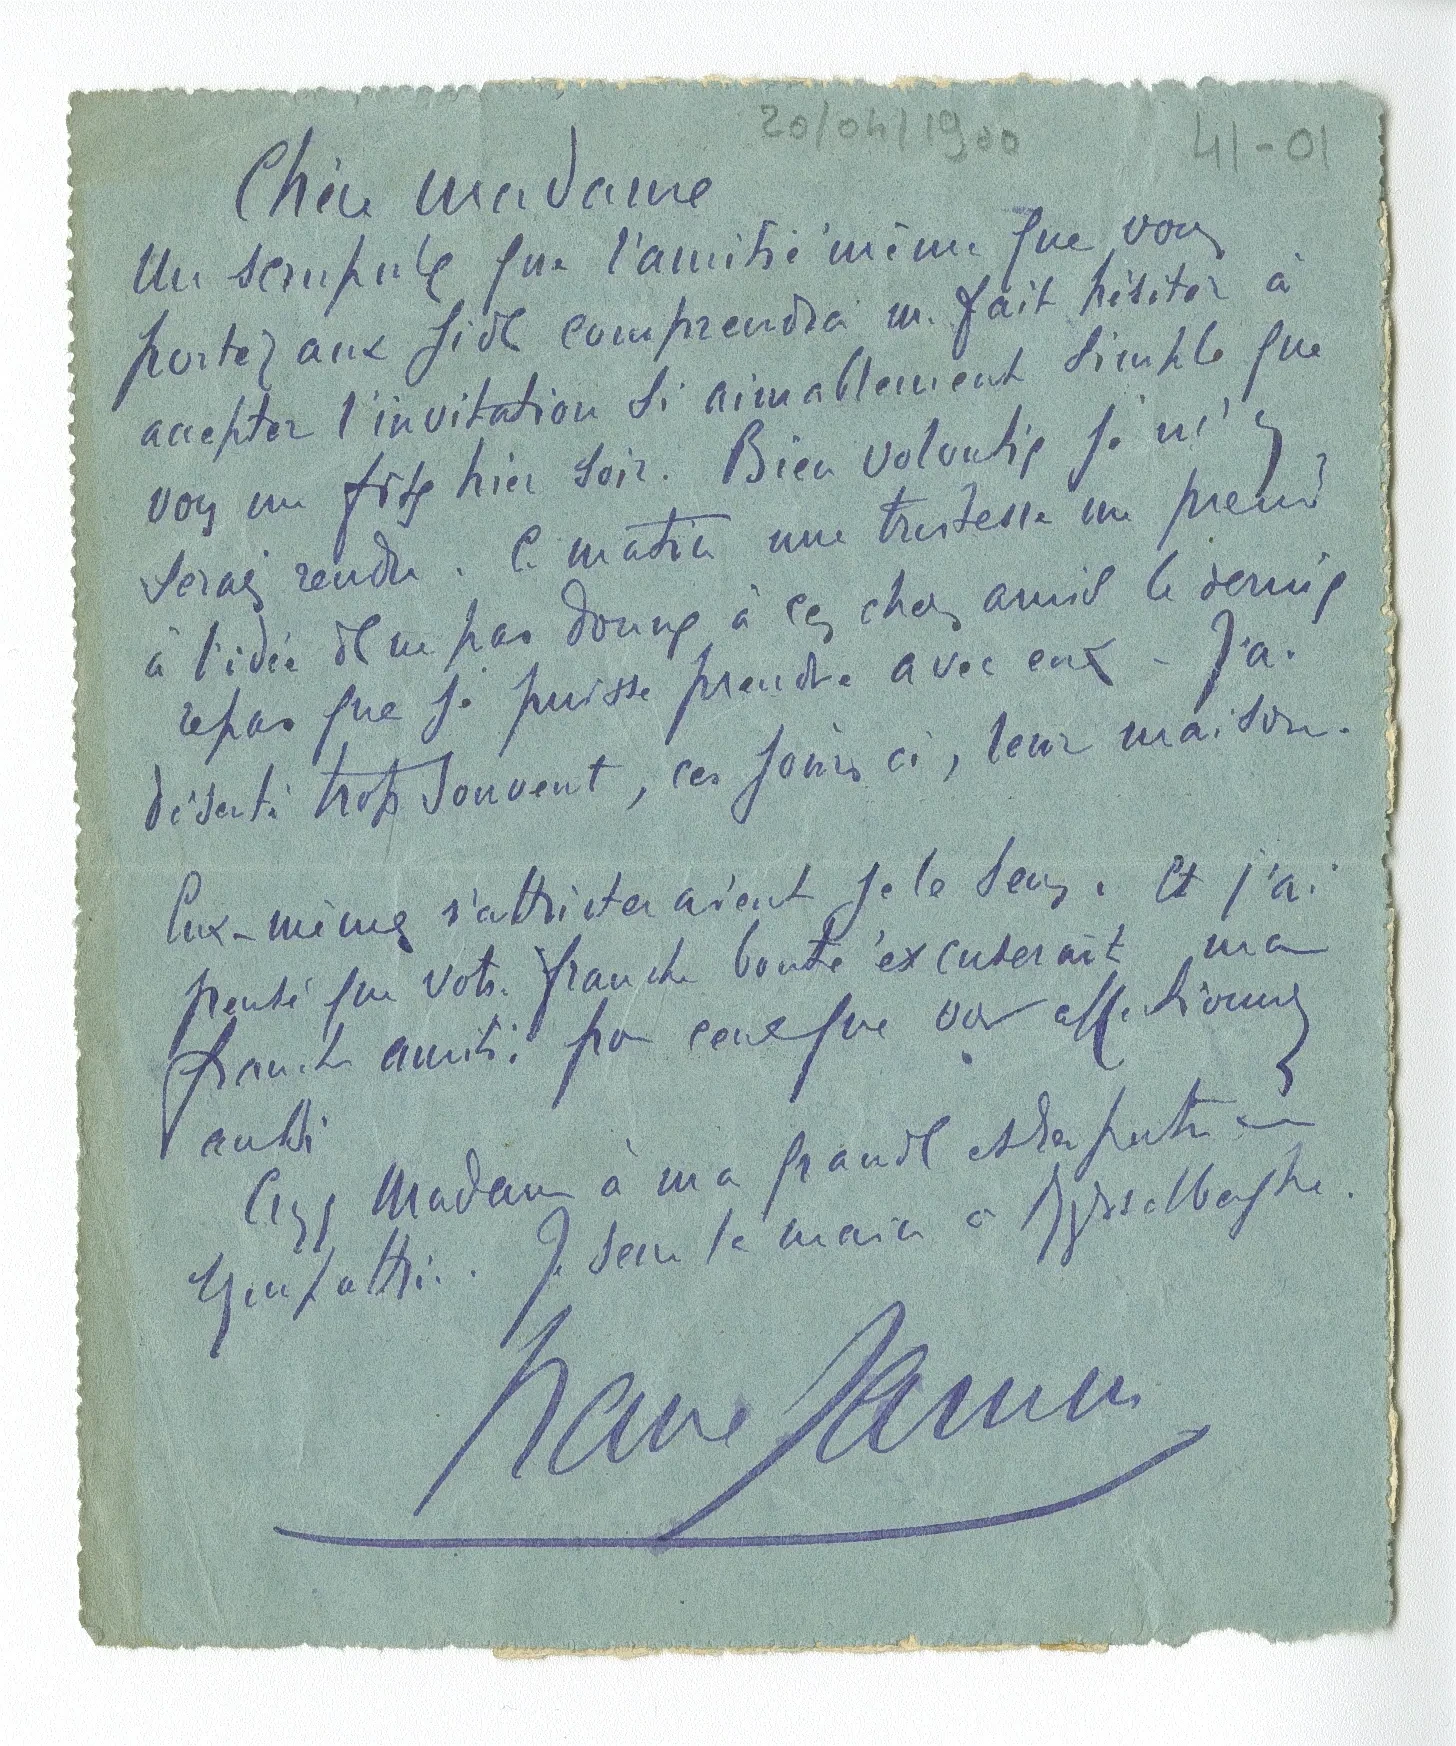 20/04/1900
41-01
Chère madame
Un scrupule que l'amitié même que vous
portez aux Gide comprendra me fait hésiter à
accepter l'invitation si aimablement simple que
vous me fîtes hier soir. Bien volontiers je m'y
serais rendu. Ce matin une tristesse me prend
à l'idée de ne pas donner à ces chers amis le dernier
repas que je puisse prendre avec eux - J'ai
déserté trop souvent, ces jours ci, leur maison.
Eux-mêmes s'attristeraient je le sens. Et j'ai
pensé que votre franche bonté excuserait ma
franche amitié pour ceux que vous affectionnez
aussi
Croyez Madame à ma grande et respectueuse
sympathie. Je serre la main à Rysselberghe.
Francis Jammes